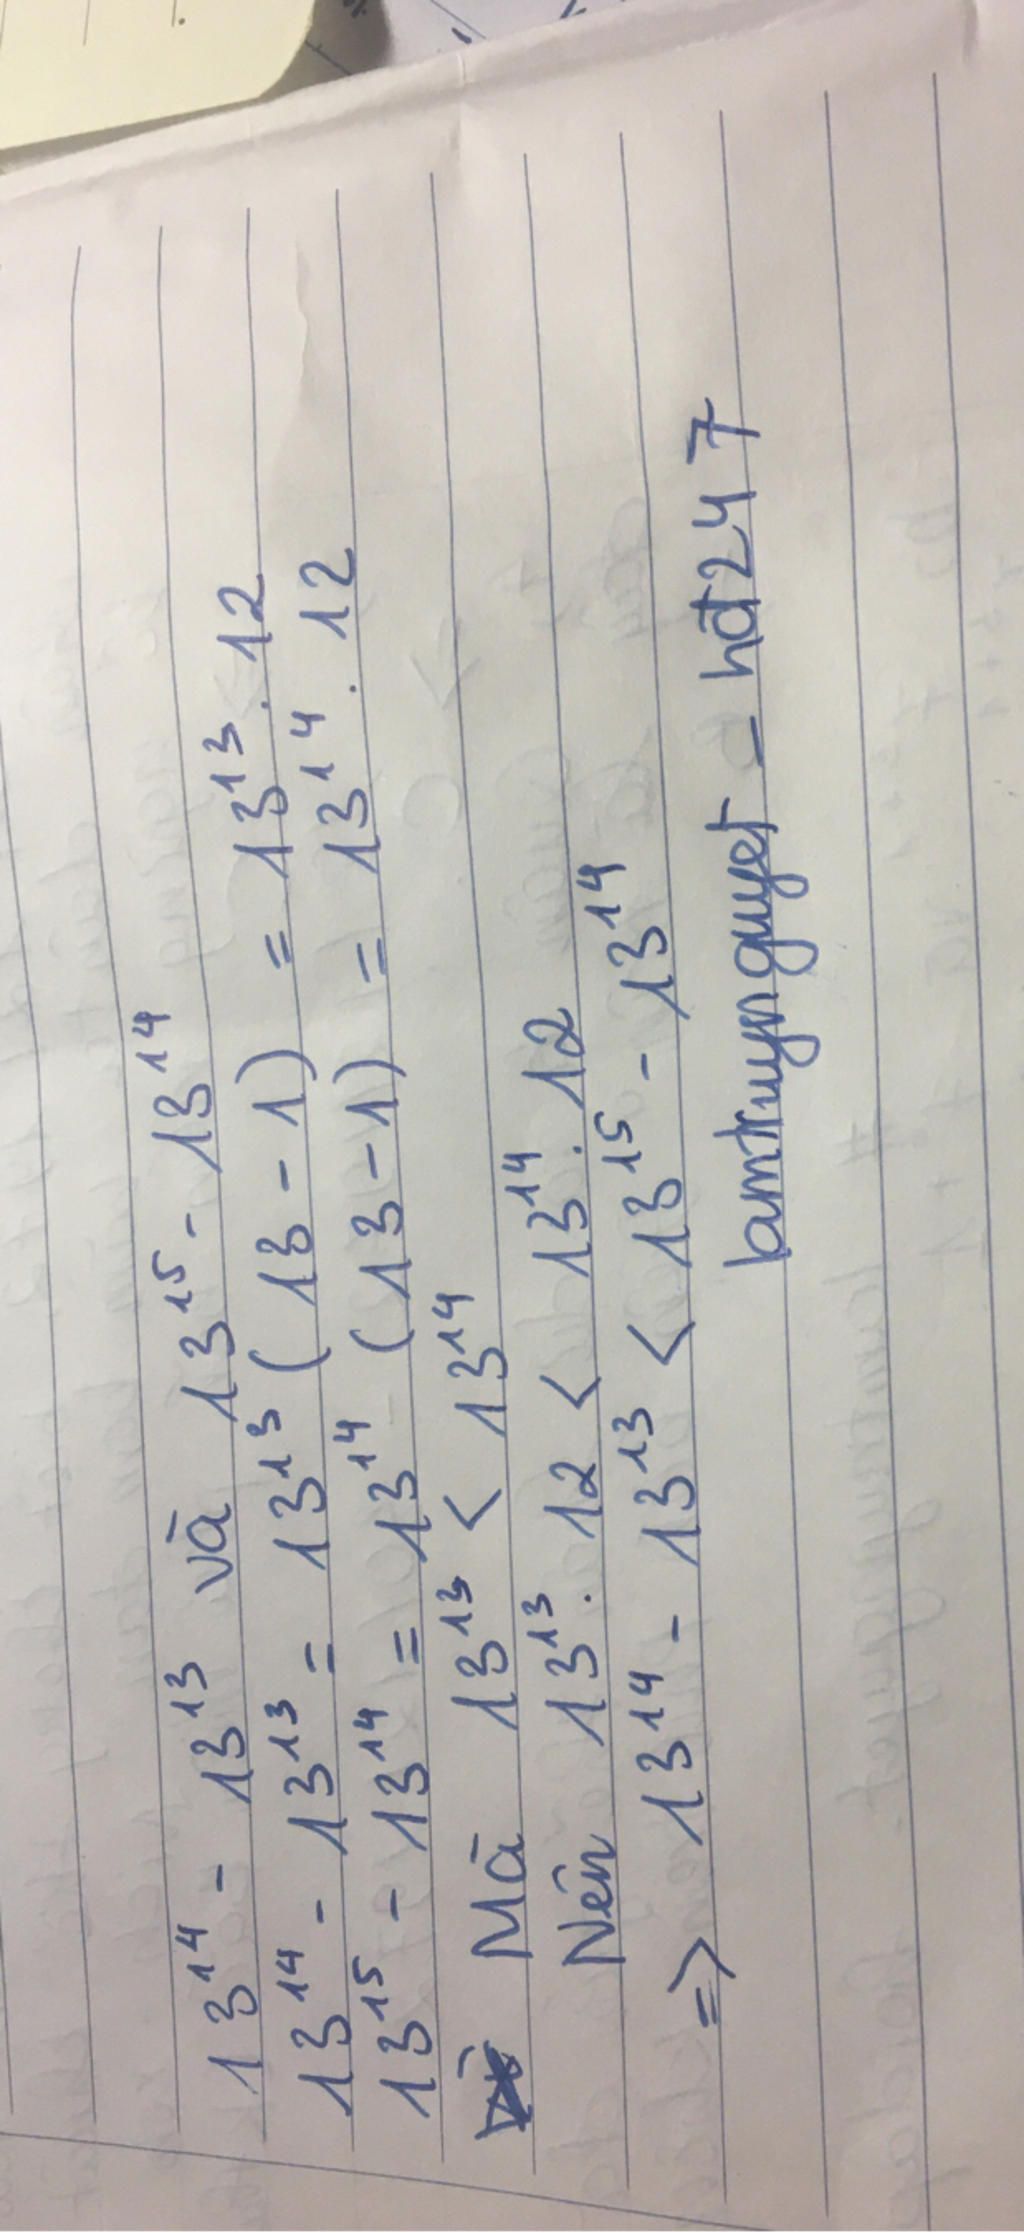 13¹⁴ - 13¹³ và 13¹⁵ - 13¹⁴
13¹⁴ - 13¹³ = 13¹³ (13 - 1) = 13¹³ . 12
13¹⁵ - 13¹⁴ = 13¹⁴ (13 - 1) = 13¹⁴ . 12
Mà 13¹³ < 13¹⁴
Nên 13¹³ . 12 < 13¹⁴ . 12
=> 13¹⁴ - 13¹³ < 13¹⁵ - 13¹⁴
lamtruynguyet - hđ247